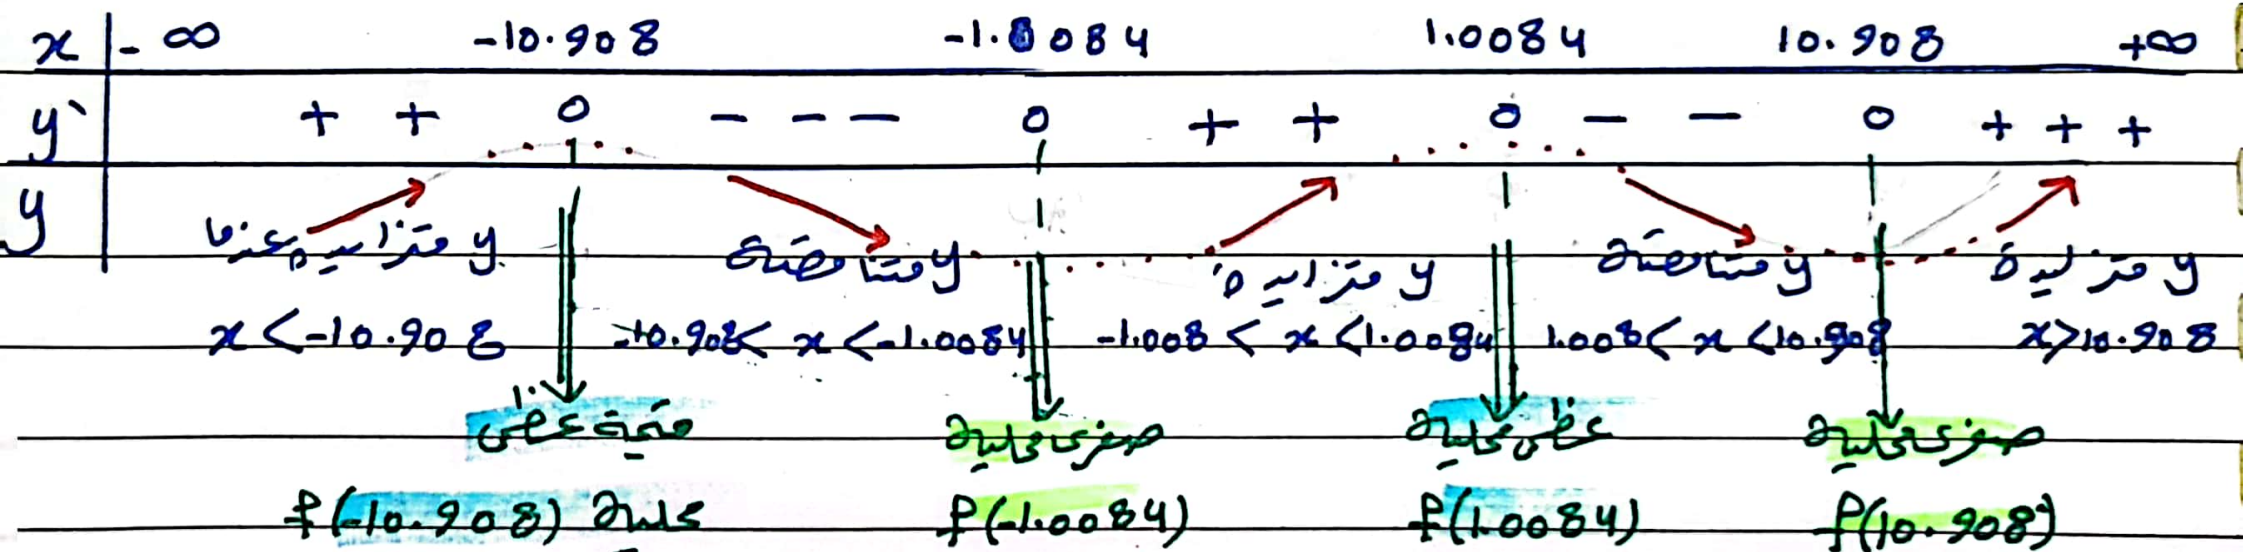 x -∞ -10.908 -1.0084 1.0084 10.908 +∞
y` + + 0 - - - 0 + + 0 - - 0 + + +
y
y متزايدة عندما y متناقصة y متزايدة y متناقصة y متزايدة
x<-10.908 -10.908< x <-1.0084 -1.008 < x <1.0084 1.008< x <10.908 x>10.908
قيمة عظمى صغرى محلية عظمى محلية صغرى محلية
محلية f(-10.908) f(-1.0084) f(1.0084) f(10.908)